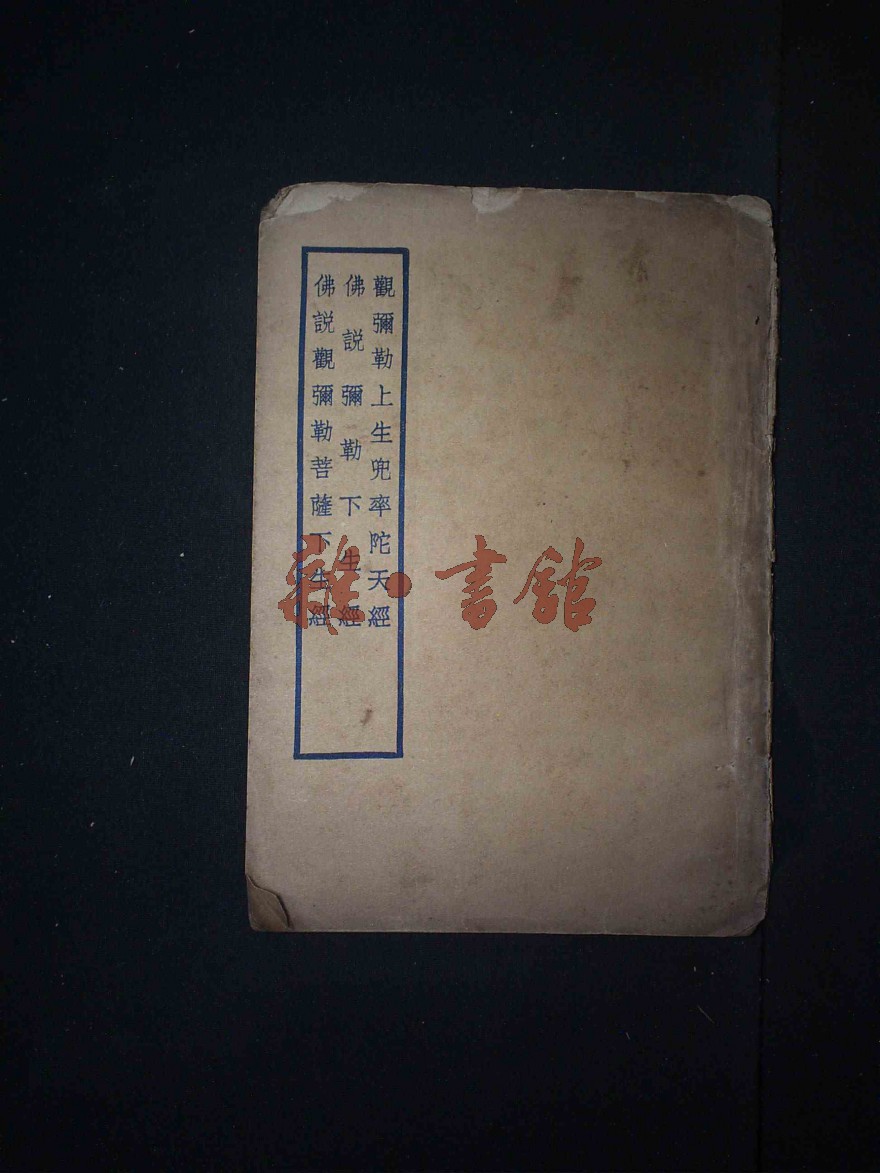 觀彌勒上生兜率陀天經
佛說彌勒下生經
佛說觀彌勒菩薩下生經
雜·書館